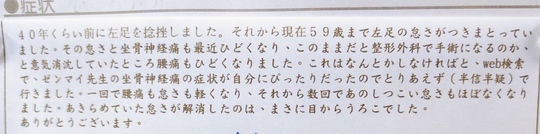 ●症状
４０年くらい前に左足を捻挫しました。それから現在５９歳まで左足の怠さがつきまとってい
ました。その怠さと坐骨神経痛も最近ひどくなり、このままだと整形外科で手術になるのか、
と意気消沈していたところ腰痛もひどくなりました。これはなんとかしなければと、web検索
で、ゼンマイ先生の坐骨神経痛の症状が自分にぴったりだったのでとりあえず（半信半疑）で
行きました。一回で腰痛も怠さも軽くなり、それから数回であのしつこい怠さもほぼなくなり
ました。あきらめていた怠さが解消したのは、まさに目からうろこでした。
ありがとうございます。